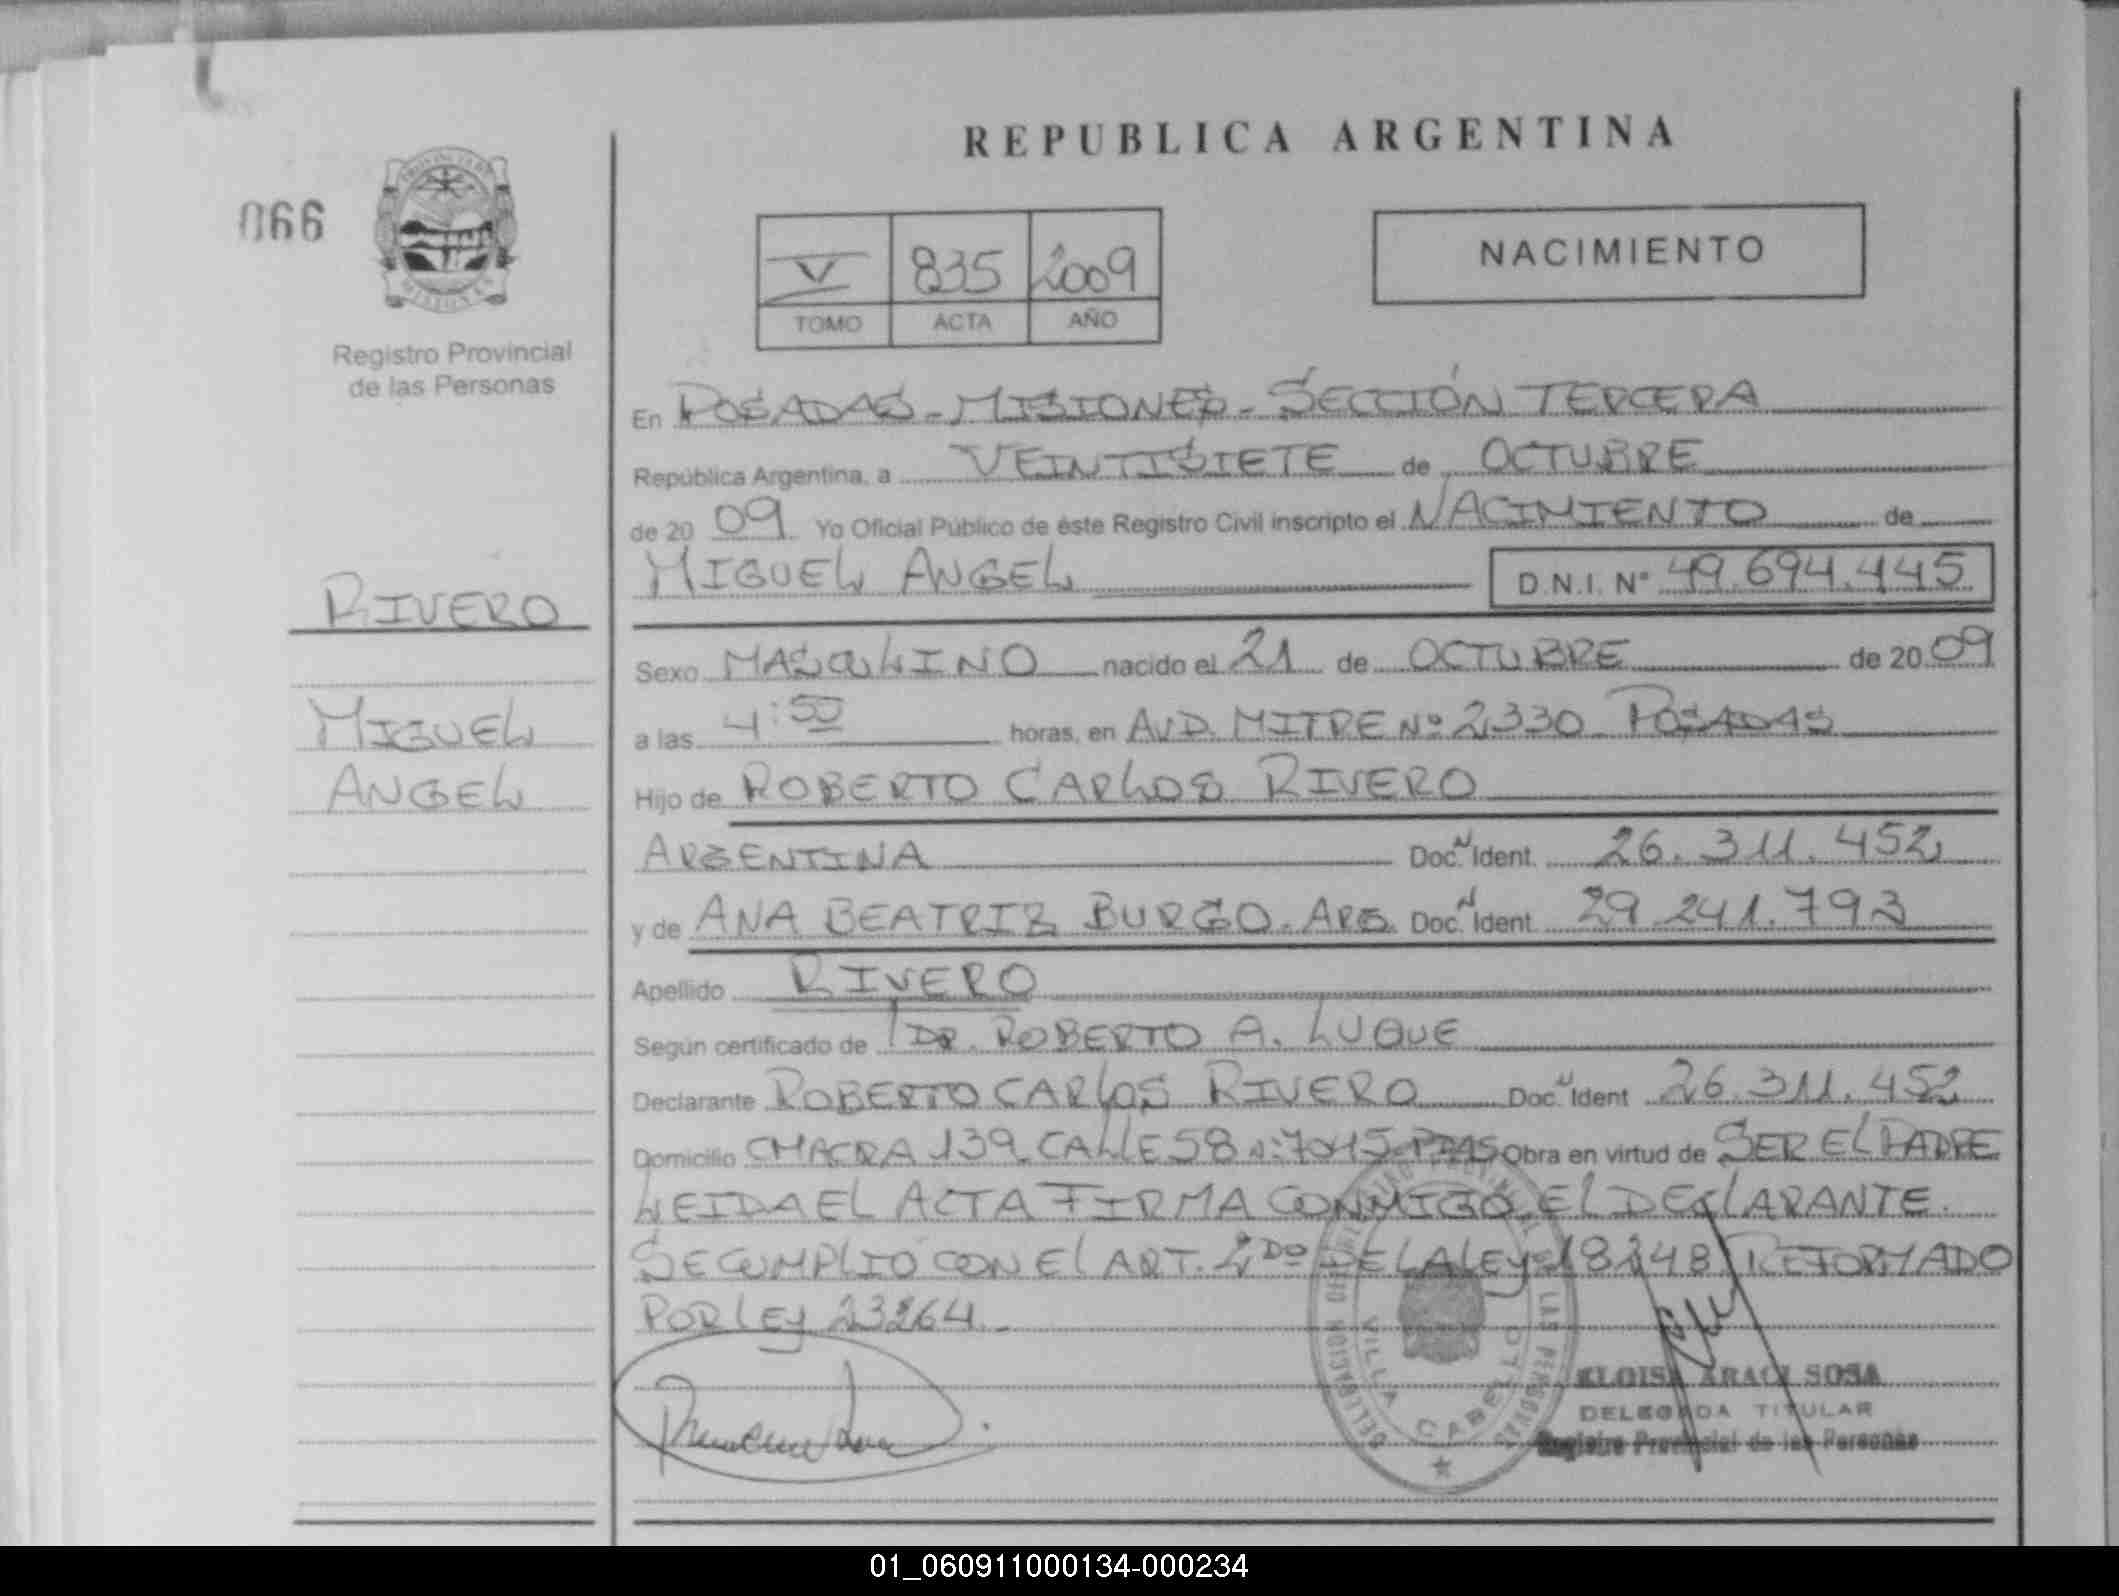 REPUBLICA ARGENTINA
066
NACIMIENTO
V 835 2009
TOMO ACTA AÑO
Registro Provincial
de las Personas
En POSADAS - MISIONES - SECCIÓN TERCERA
República Argentina, a VEINTISIETE de OCTUBRE
de 20 09 Yo Oficial Público de éste Registro Civil inscripto el NACIMIENTO de
MIGUEL ANGEL D.N.I. Nº 49.694.445
RIVERO
Sexo MASCULINO nacido el 21 de OCTUBRE de 20 09
MIGUEL
a las 4:50 horas, en AVD. MITRE Nº 2330 POSADAS
ANGEL
Hijo de ROBERTO CARLOS RIVERO
ARGENTINA Doc. N Ident. 26.311.452
y de ANA BEATRIZ BURGO. ARG. Doc. N Ident. 29.241.793
Apellido RIVERO
Según certificado de DR. ROBERTO A. LUQUE
Declarante ROBERTO CARLOS RIVERO Doc. N Ident 26.311.452
Domicilio CHACRA 139 CALLE 58 Nº 7045 PDAS Obra en virtud de SER EL PADRE
LEIDA EL ACTA FIRMA CONMIGO EL DECLARANTE.
SE CUMPLIO CON EL ART. 2DO DE LA LEY 18248 REFORMADO
POR LEY 23264.-
VILLA CABELLO
ELOISA ARACI SOSA
DELEGADA TITULAR
Registro Provincial de las Personas
01_060911000134-000234